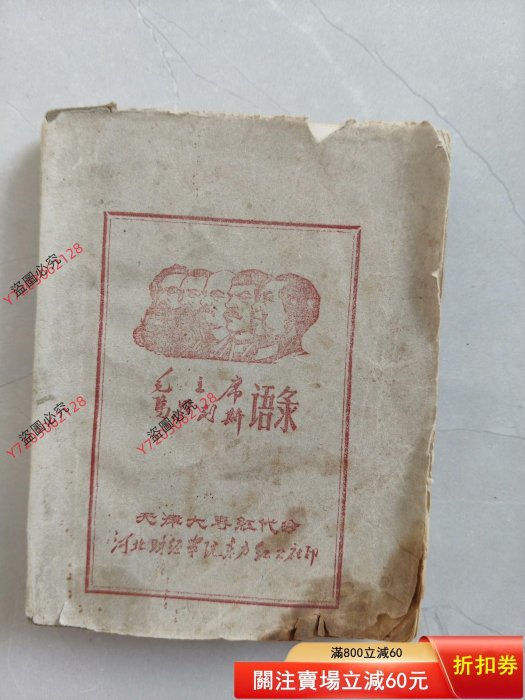 盜圖必究
毛主席
马恩列斯
语录
盜圖必究
盜圖必究
天津大专红代会
河北财经学院东方红公社印
滿800立減60
關注賣場立減60元
折扣券